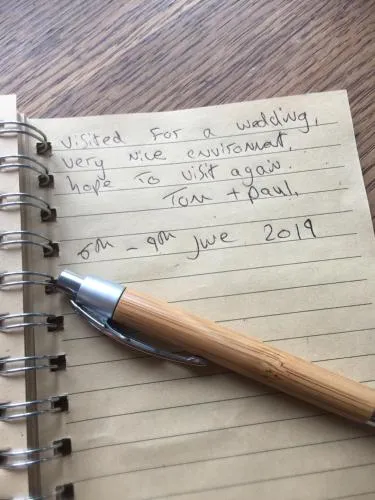 visited for a wedding,
very nice enviroment,
hope to visit again.
Tom + Paul.
6th - 9th June 2019